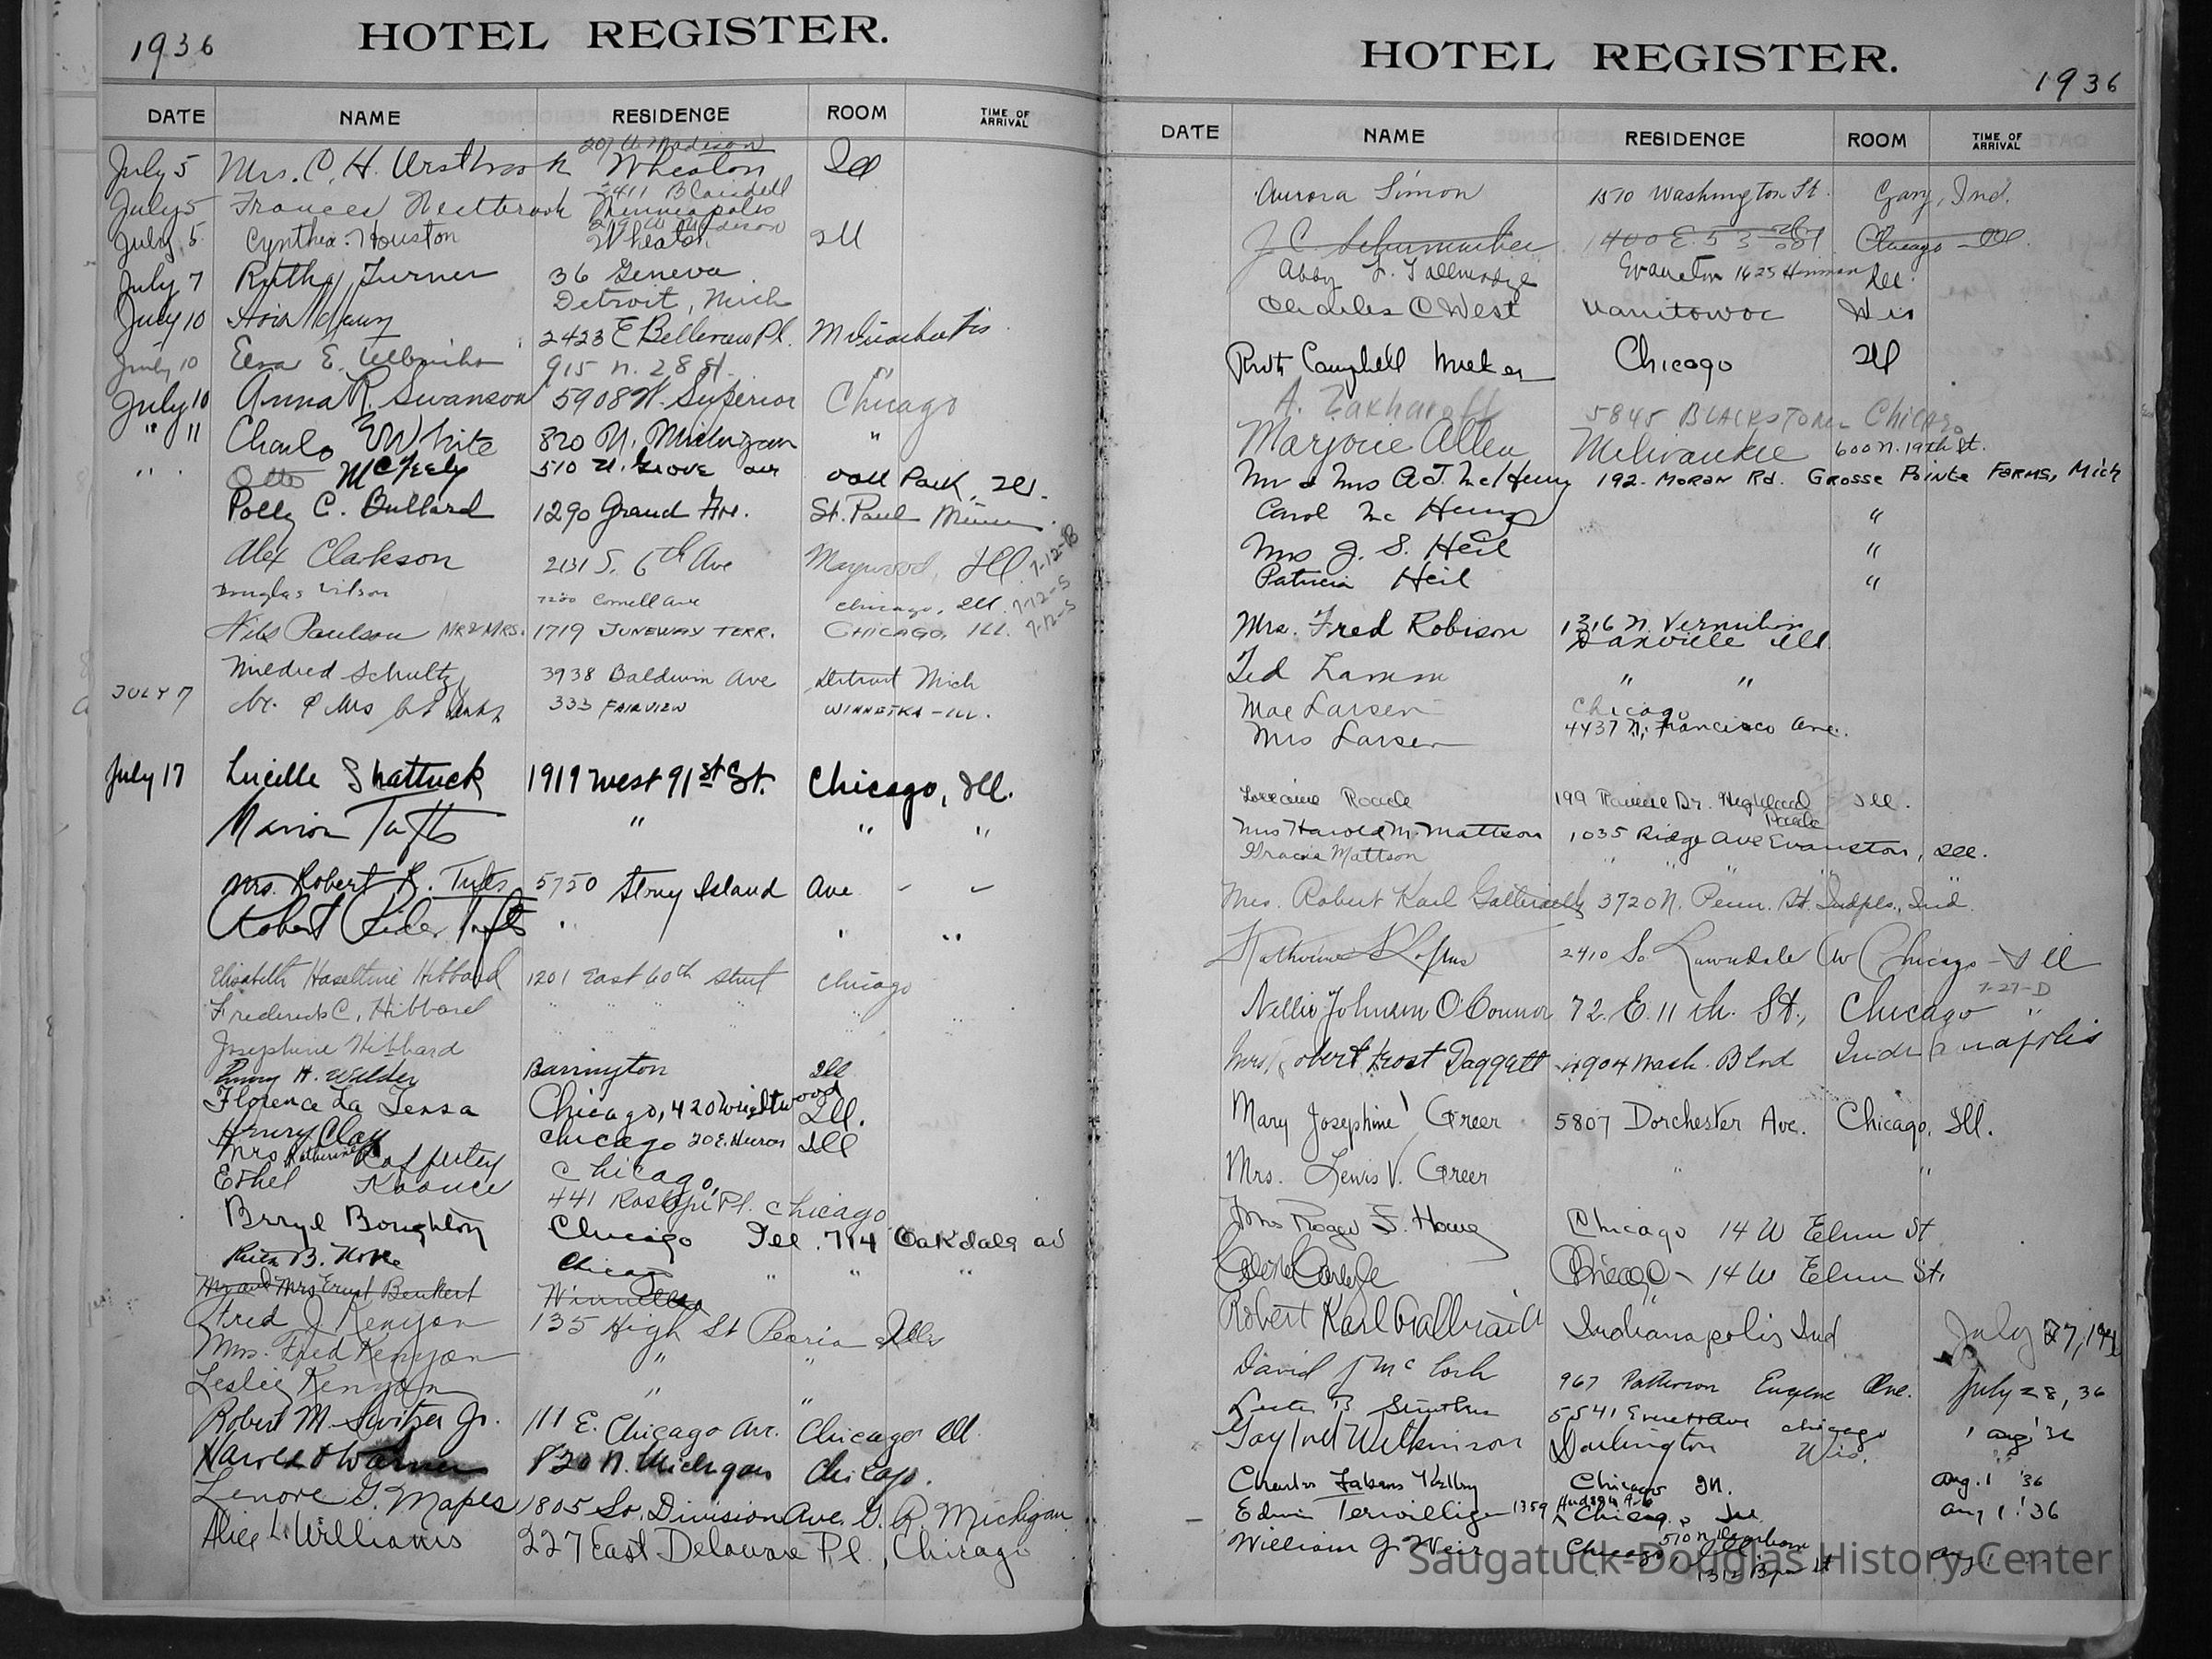 1936 HOTEL REGISTER.
DATE NAME RESIDENCE ROOM TIME OF ARRIVAL
207 W. Madison
July 5 Mrs. C. H. Westbrook Wheaton Ill
2411 Blaisdell
July 5 Frances Westbrook Minneapolis
Madison
July 5 Cynthia Houston Wheaton Ill
July 7 Ruth Turner 36 Geneva
Detroit, Mich
July 10 2423 E Belleview Pl.
July 10 E. 915 N. 28 St. "
July 10 Anna R. Swanson 5908 W. Superior Chicago
" 11 White 820 N. Michigan "
" Otto McFeely 510 N. Grove ave Oak Park, Ill.
Polly C. Bullard 1290 Grand Ave. St. Paul Minn.
Alex Clarkson 2131 S. 6th Ave Maywood, Ill. 7-12-B
Douglas Wilson 7200 Cornell Ave Chicago, Ill. 7-12-S
Nils Paulson MR & MRS. 1719 JUNEWAY TERR. CHICAGO, ILL. 7-12-S
Mildred Schultz 3938 Baldwin Ave Detroit Mich
JULY 7 Mr. & Mrs 333 FAIRVIEW WINNETKA - ILL.
July 17 Lucille Shattuck 1919 West 91st St. Chicago, Ill.
Marion Tufts " " "
Mrs. Robert R. Tufts 5750 Stony Island Ave " "
Robert Rider Tufts " " "
Elisabeth Haseltine Hibbard 1201 East 60th Street Chicago
Frederick C. Hibbard " " " " " "
Josephine Hibbard
H. Wilder Barrington Ill
Florence La Tersa Chicago, 420 Wrightwood Ill.
Henry Clay Chicago 20 E. Huron Ill
Mrs Katherine Rafferty Chicago,
Ethel Koonce 441 Roslyn Pl. Chicago
Beryl Boughton Chicago Ill. 714 Oakdale av
Ruth B. Chicago " " "
Mr and Mrs Ernst Benkert Winnetka
Fred J. Kenyon 135 High St Peoria Ills
Mrs. Fred Kenyon " "
Leslie Kenyon " "
Robert M. Switzer Jr. 111 E. Chicago Av. Chicago Ill
Harold Warner 820 N. Michigan Chicago.
Lenore G. Mapes 1805 So. Division Ave. G. R. Michigan
Alice L. Williams 227 East Delaware Pl., Chicago
HOTEL REGISTER. 1936
DATE NAME RESIDENCE ROOM TIME OF ARRIVAL
Aurora Simon 1570 Washington St. Gary, Ind.
J C Schumacher 1400 E. 53 Chicago Ill
Abby L. Tallmadge Evanston 1625 Hinman Ill.
Charles C West Manitowoc Wis
Ruth Campbell Chicago Ill
A. Zakharoff 5845 BLACKSTONE CHICAGO
Marjorie Allen Milwaukee 600 N. 19th St.
Mr & Mrs A J. McHenry 192 Moran Rd. Grosse Pointe Farms, Mich
Carol McHenry "
Mrs J. S. Heil "
Patricia Heil "
Mrs. Fred Robison 1316 N. Vermilion
Danville Ill.
Ted Lamm " "
Mae Larsen Chicago
Mrs Larsen 4437 N. Francisco Ave.
Lorraine Roade 199 Ravine Dr. Highland Ill.
Park
Mrs Harold M. Mattson 1035 Ridge Ave Evanston, Ill.
Gracia Mattson " " "
Mrs. Robert Karl Galbraith 3720 N. Penn. St. Indpls., Ind.
Katherine 2410 So. Lawndale Av Chicago - Ill
7-27-D
Nellie Johnson O'Connor 72. E. 11th. St., Chicago "
Mrs Robert Frost Daggett 4904 Wash. Blvd Indianapolis
Mary Josephine Greer 5807 Dorchester Ave. Chicago, Ill.
Mrs. Lewis V. Greer " "
Mrs Roger F. Howe Chicago 14 W Elm St
Chicago - 14 W Elm St.
Robert Karl Galbraith Indianapolis Ind July 27,
David J 967 Patterson Eugene Ore. July 28, 36
Lester B 5541 Everett Ave Chicago 1 Aug '36
Gaylord Wilkinson Darlington Wis.
Charles Fabens Kelley Chicago Ill. Aug. 1 '36
Edwin Terwilliger 1359 Chicago Ill. Aug 1 '36
William J Weir Chicago, Ill Aug 1
Saugatuck-Douglas History Center